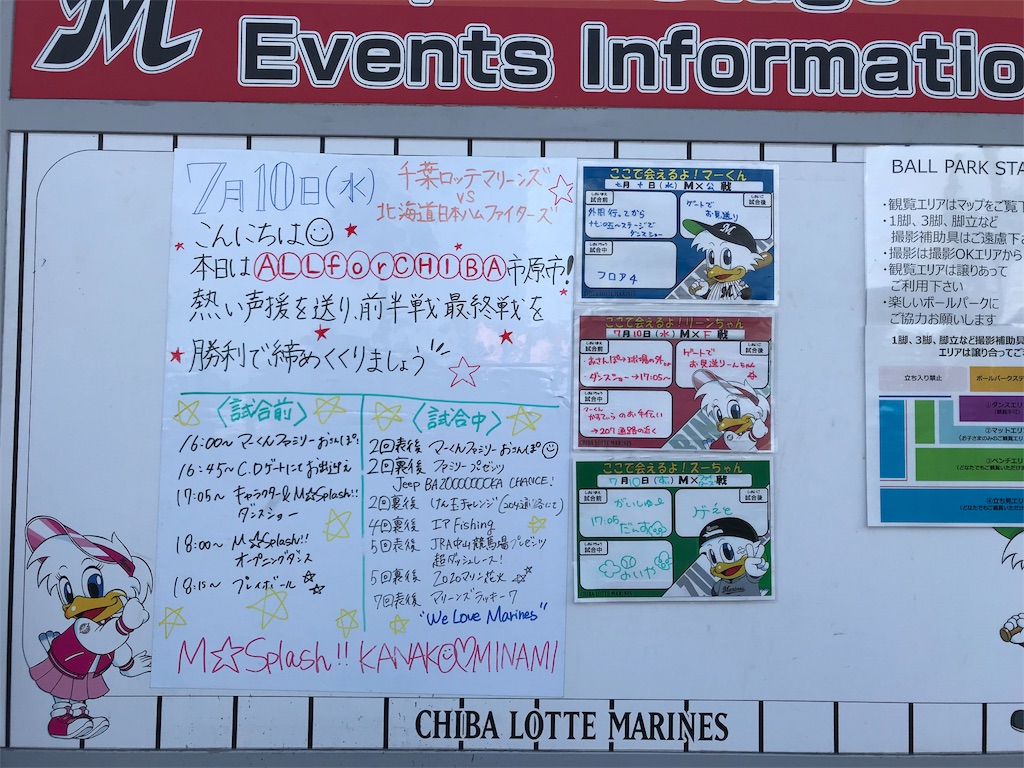 M
Events Informatio
7月10日(水)
千葉ロッテマリーンズ
VS
北海道日本ハムファイターズ
こんにちは
本日はALLforCHIBA市原市!
熱い声援を送り、前半戦最終戦を
勝利で締めくくりましょう
〈試合前〉
16:00～マーくんファミリーおさんぽ
16:45～C.Dゲートにてお出迎え
17:05～キャラクター&M☆Splash!!
ダンスショー
18:00～M☆Splash!!
オープニングダンス
18:15～プレイボール☆
〈試合中〉
2回表後 マーくんファミリーおさんぽ
2回裏後 ファミリープレゼンツ
Jeep BAZOOOOOOOKA CHANCE!
2回裏後 けん玉チャレンジ
4回裏後 エア Fishing
5回表後 JRA中山競馬場プレゼンツ
超ダッシュレース!
5回裏後 2020マリン花火☆
7回表後 マリーンズラッキー7
"We Love Marines"
M☆Splash!! KANAKO♡MINAMI
ここで会えるよ!マーくん
七月十日(水)M×公戦
試合前
外周行ってから
ステージで
ダンスショー
試合後
ゲートで
お見送り
試合中
フロア4
ここで会えるよ!リーンちゃん
7月10日(水)M×F戦
試合前
おさんぽ→球場の外
・ダンスショー→17:05～
試合後
ゲートで
お見送りーんちゃん
試合中
マーくん
のお手伝い
→207通路の近く
CHIBA LOTTE MARINES
ここで会えるよ!ズーちゃん
試合前
がいしゅー
17:05
だんす
試合後
げえと
試合中
CHIBA LOTTE MARINES
BALL PARK STA
・観覧エリアはマップをご覧下
・1脚、3脚、脚立など
撮影補助具はご遠慮下
・撮影は撮影OKエリアから
・観覧エリアは譲りあって
ご利用下さい
・楽しいボールパークに
ご協力お願いします
1脚、3脚、脚立など撮影補助具
エリアは譲り合ってご
立ち入り禁止
ボールパークステ
①ダンスエリ
②マットエリ
③ベンチエリ
④立ち見エリ
CHIBA LOTTE MARINES